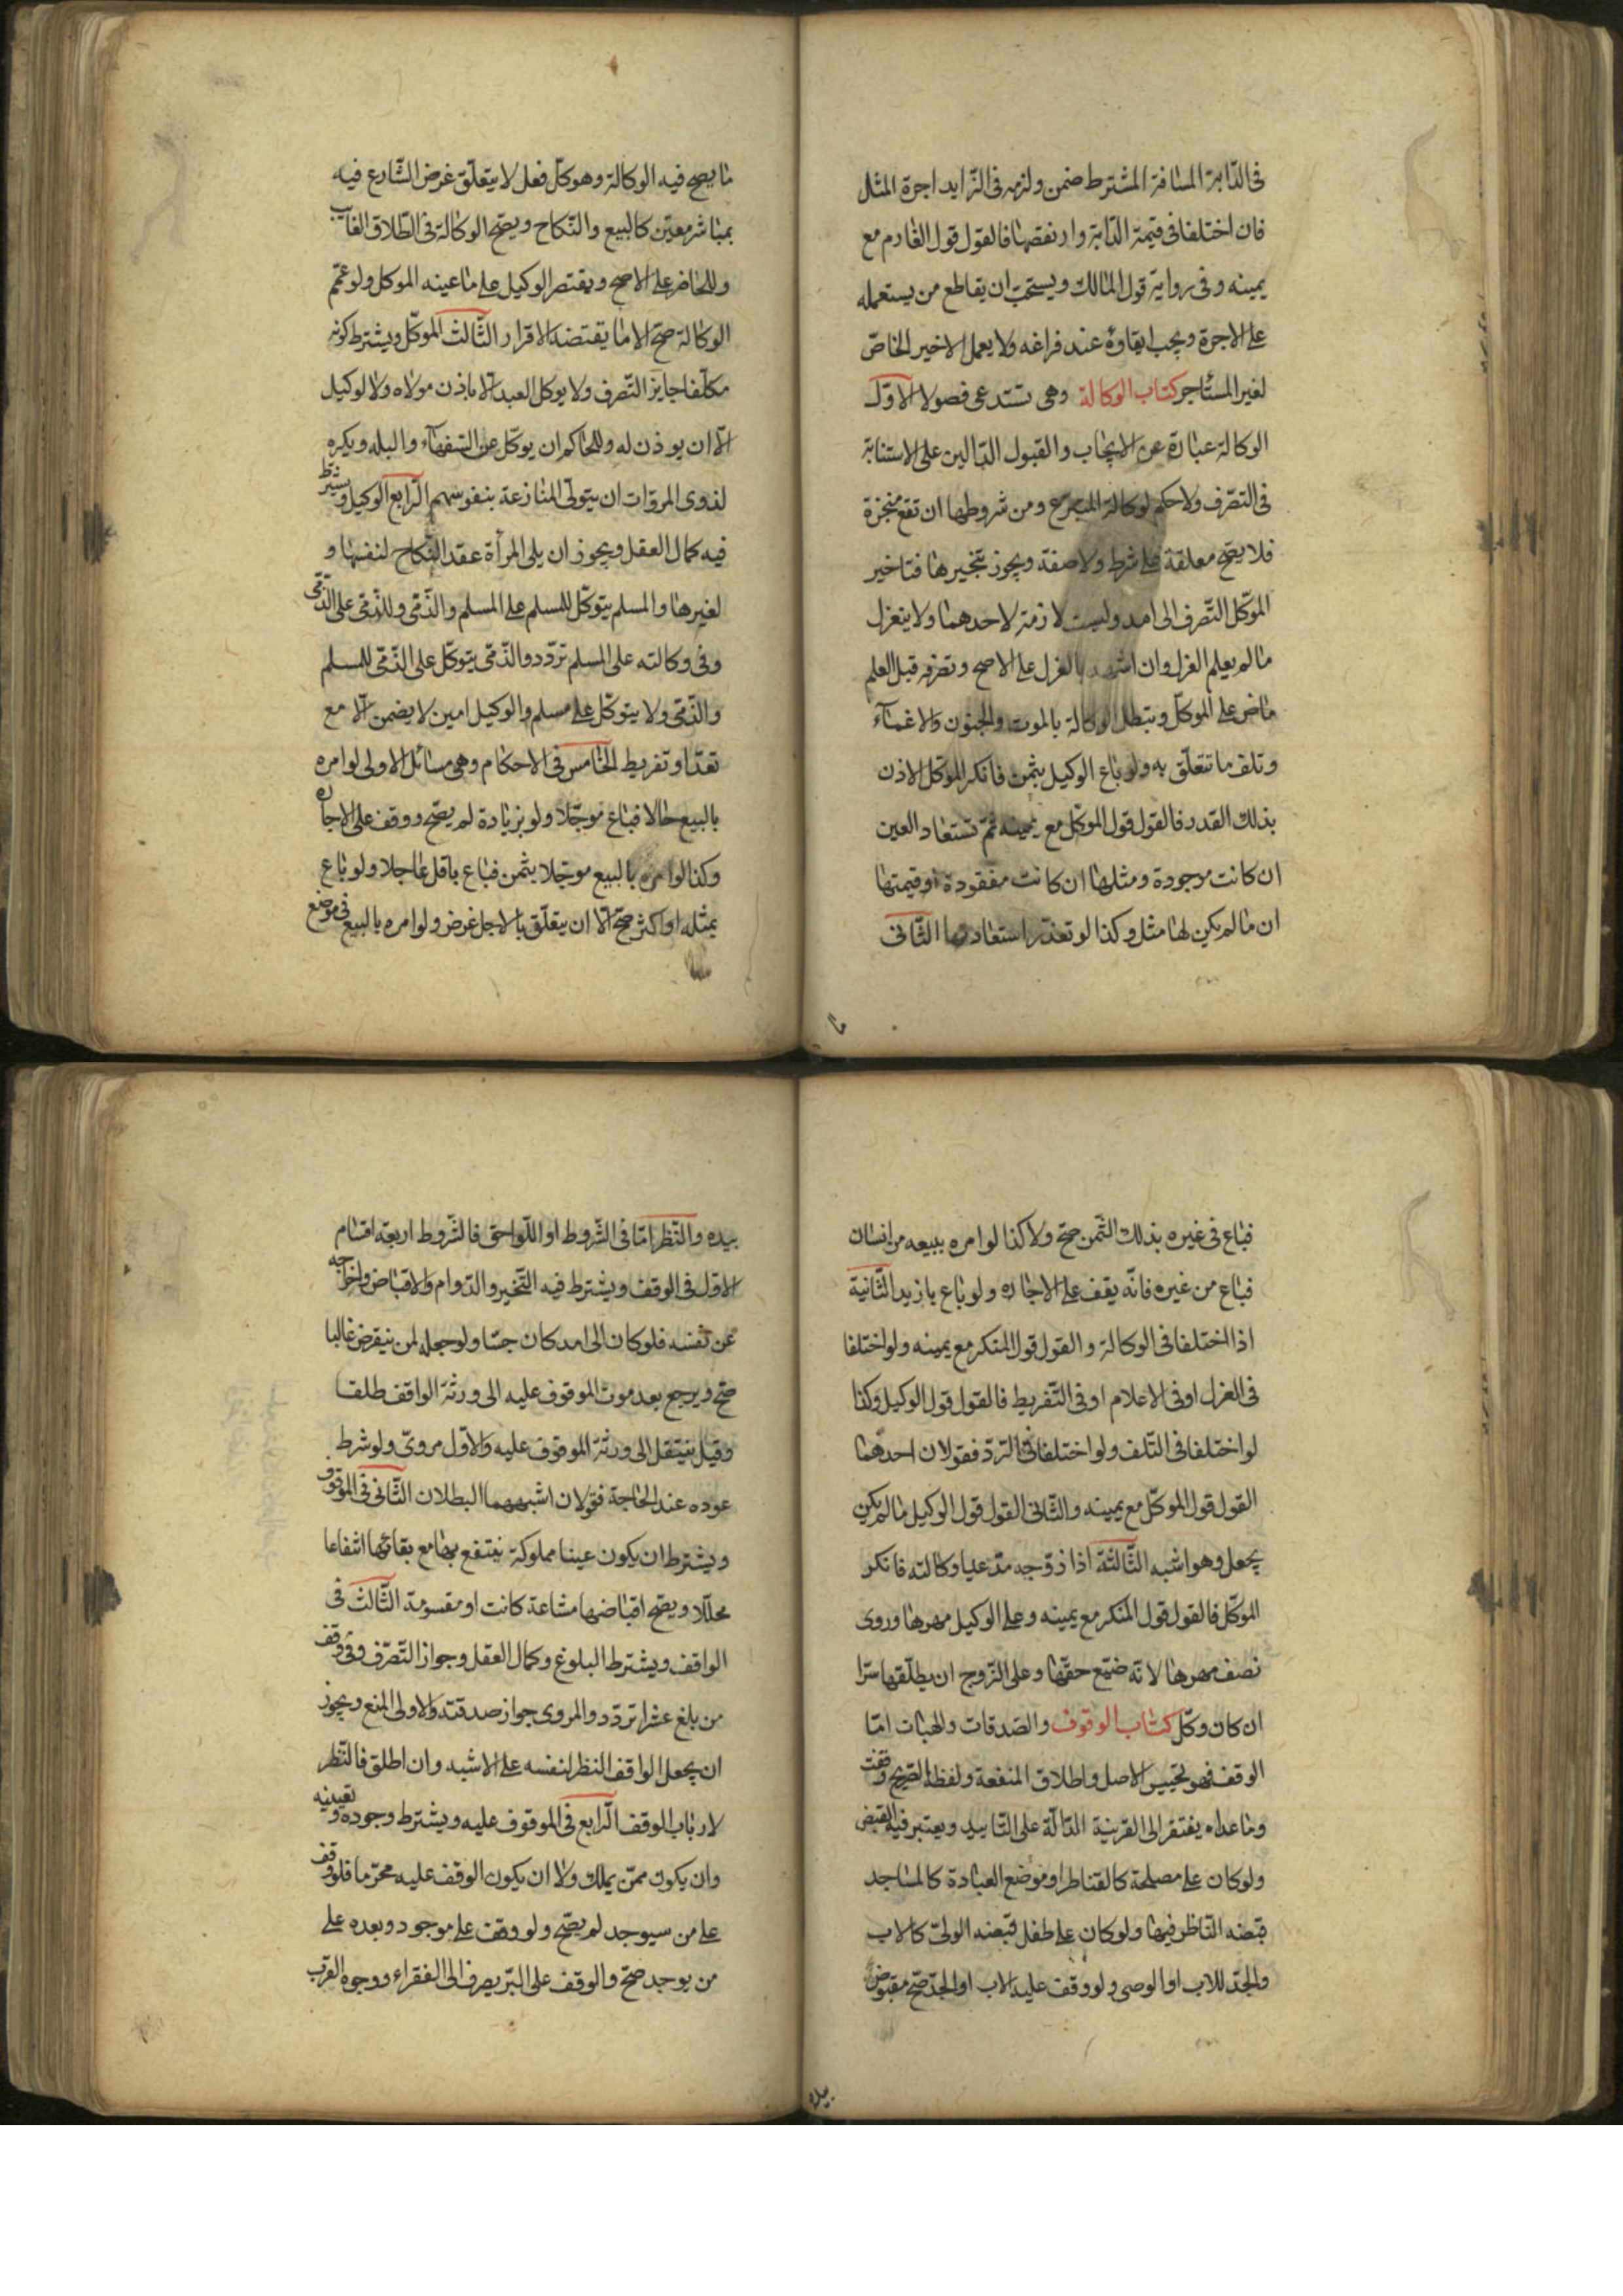 فى الدّابة المسافة المشترط ضمن ولزمه فى الزايد اجرة المثل
فان اختلفا فى قيمة الدّابة وارنقصها فالقول قول الغارم مع
يمينه وفى رواية قول المالك ويستحبّ ان يقاطع من يستعمله
على الاجرة ويجب ايفاؤه عند فراغه ولا يعمل الاخير الخاصّ
لغير المستأجر كتاب الوكالة وهى تستدعى فصولا الاوّل
الوكالة عبارة عن الايجاب والقبول الدّالين على الاستنابة
فى التصرّف ولا حكم لوكالة المتبرّع ومن شروطها ان تقع منجزة
فلا يصحّ معلقة على شرط ولا صفة ويجوز تنجيزها فتاخير
الموكّل التّصرف الى امد وليست لازمة لاحدهما ولا ينعزل
ما لم يعلم العزل وان اشهد بالعزل على الاصح وتصرفه قبل العلم
ماض على الموكّل وتبطل الوكالة بالموت والجنون والاغماء
وتلف ما تتعلّق به ولو باع الوكيل بثمن فانكر الموكّل الاذن
بذلك القدر فالقول قول الموكّل مع يمينه ثمّ تستعاد العين
ان كانت موجودة ومثلها ان كانت مفقودة او قيمتها
ان ما لم يكن لها مثل وكذا لو تعذّر استعادتها الثّانى
ما
ما يصح فيه الوكالة وهو كلّ فعل لا يتعلّق غرض الشّارع فيه
بمباشر معيّن كالبيع والنّكاح ويصحّ الوكالة فى الطّلاق الغايب
وللحاضر على الاصح ويقتصر الوكيل على ما عينه الموكل ولو عمّم
الوكالة صحّ الا ما يقتضه الاقرار الثّالث الموكّل ويشترط كونه
مكلّفا جايز التّصرف ولا يوكل العبد الّا باذن مولاه ولا لوكيل
الّا ان يوذن له وللحاكم ان يوكّل عن السّفهاء والبله ويكره
لذوى المروّات ان يتولّى المنازعة بنفوسهم الرّابع الوكيل ويشترط
فيه كمال العقل ويجوز ان يلى المرأة عقد النّكاح لنفسها و
لغيرها والمسلم يتوكّل للمسلم على المسلم والذّمّى وللذّمّى على الذّمّى
وفى وكالته على المسلم تردّد والذّمّى يتوكّل على الذّمّى للمسلم
والذّمّى ولا يتوكّل على مسلم والوكيل امين لا يضمن الّا مع
تعدّ او تفريط الخامس فى الاحكام وهى مسائل الاولى لو امره
بالبيع حالا فباع موجّلا ولو بزيادة لم يصحّ ووقف على الاجازه
وكذا لو امره بالبيع موجّلا بثمن فباع باقل عاجلا ولو باع
بمثله او اكثر صحّ الّا ان يتعلّق بالاجل غرض ولو امره بالبيع فى موضع
فباع فى غيره بذلك الثّمن صحّ ولا كذا لو امره ببيعه من انسان
فباع من غيره فانّه يقف على الاجازه ولو باع بازيد الثّانية
اذا اختلفا فى الوكالة والقول قول المنكر مع يمينه ولو اختلفا
فى العزل او فى الاعلام او فى التّفريط فالقول قول الوكيل وكذا
لو اختلفا فى التّلف ولو اختلفا فى الرّدّ فقولان احدهما
القول قول الموكّل مع يمينه والثّانى القول قول الوكيل ما لم يكن
بجعل وهو اشبه الثّالثة اذا زوّجه مدّعيا وكالته فانكر
الموكّل فالقول قول المنكر مع يمينه وعلى الوكيل مهرها وروى
نصف مهرها لانّه ضيّع حقّها وعلى الزّوج ان يطلّقها سرّا
ان كان وكّل كتاب الوقوف والصّدقات والهبات امّا
الوقف فهو تحبيس الاصل واطلاق المنفعة ولفظه الصّريح وقفت
وما عداه يفتقر الى القرينة الدّالّة على التّابيد ويعتبر فيه القبض
ولو كان على مصلحة كالقناطر او موضع العبادة كالمساجد
قبضه النّاظر فيها ولو كان على طفل قبضه الولىّ كالاب
والجدّ للاب او الوصى ولو وقف عليه الاب او الجدّ صحّ مقبوض
بيده
بيده والنّظر امّا فى الشّروط او اللّواحق فالشّروط اربعه اقسام
الاوّل فى الوقف ويشترط فيه التّنجيز والدّوام والاقباض واخراجه
عن نفسه فلو كان الى امد كان حبسا ولو جعله لمن ينقرض غالبا
صحّ ويرجع بعد موت الموقوف عليه الى ورثة الواقف طلقا
وقيل ينتقل الى ورثة الموقوف عليه والاوّل مروىّ ولو شرط
عوده عند الحاجة فقولان اشبههما البطلان الثّانى فى الموقوف
ويشترط ان يكون عينا مملوكة ينتفع بها مع بقائها انتفاعا
محلّلا ويصحّ اقباضها مشاعة كانت او مقسومة الثّالث فى
الواقف ويشترط البلوغ وكمال العقل وجواز التّصرّف وفى وقف
من بلغ عشرا تردّد والمروى جواز صدقته والاولى المنع ويجوز
ان يجعل الواقف النظر لنفسه على الاشبه وان اطلق فالنّظر
لارباب الوقف الرّابع فى الموقوف عليه ويشترط وجوده وتعيينه
وان يكون ممّن يملك ولا ان يكون الوقف عليه محرّما فلو وقف
على من سيوجد لم يصحّ ولو وقف على موجود وبعده على
من يوجد صحّ والوقف على البرّ يصرف الى الفقراء ووجوه القرب